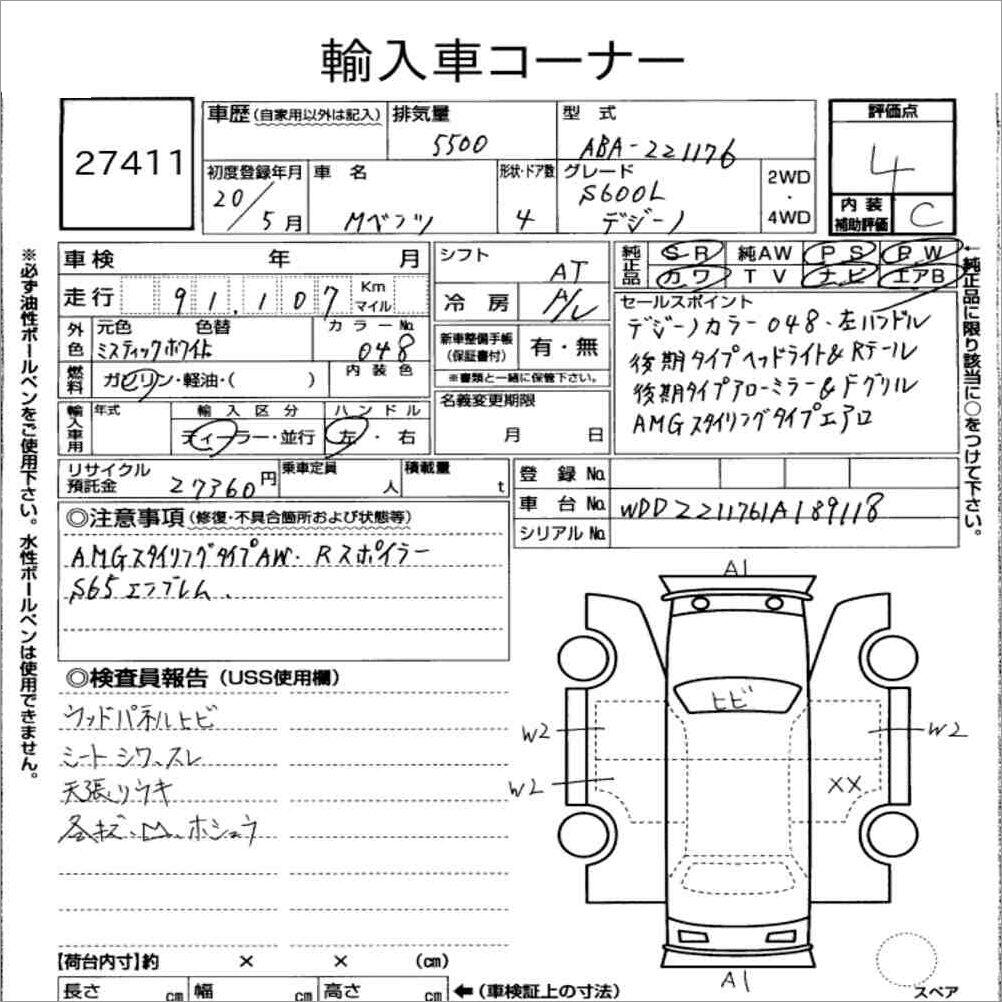 輸入車コーナー
27411
車歴(自家用以外は記入) 排気量 5500 型式 ABA-221176 評価点 4
初度登録年月 20/5月 車名 Mベンツ 形状・ドア数 4 グレード S600L デジーノ 2WD・4WD
内装補助評価 C
車検 年 月
走行 91,107 Km マイル
外色 元色 ミスティックホワイト 色替 カラーNo. 048
燃料 ガソリン・軽油・( ) 内装色
輸入車用 年式 輸入区分 ディーラー・並行 ハンドル 左・右
シフト AT
冷房 A/C
新車整備手帳(保証書付) 有・無
※書類と一緒に保管下さい。
名義変更期限
月 日
純正品 SR 純AW PS PW
カワ TV ナビ エアB
セールスポイント
デジーノカラー048・左ハンドル
後期タイプヘッドライト&Rテール
後期タイプアローミラー&Fグリル
AMGスタイリングタイプエアロ
←純正品に限り該当に○をつけて下さい。
※必ず油性ボールペンをご使用下さい。水性ボールペンは使用できません。
リサイクル預託金 27360円 乗車定員 人 積載量 t
登録No.
車台No. WDD2211761A189118
シリアルNo.
◎注意事項(修復・不具合箇所および状態等)
AMGスタイリングタイプAW・Rスポイラー
S65エンブレム.
◎検査員報告(USS使用欄)
ウッドパネルヒビ
シートシワ、スレ
天張りウキ
各キズ・凹、ホシュウ
A1
ヒビ
W2
W2
W2
XX
A1
【荷台内寸】約 × × (cm)
長さ cm 幅 cm 高さ cm ←(車検証上の寸法)
スペア